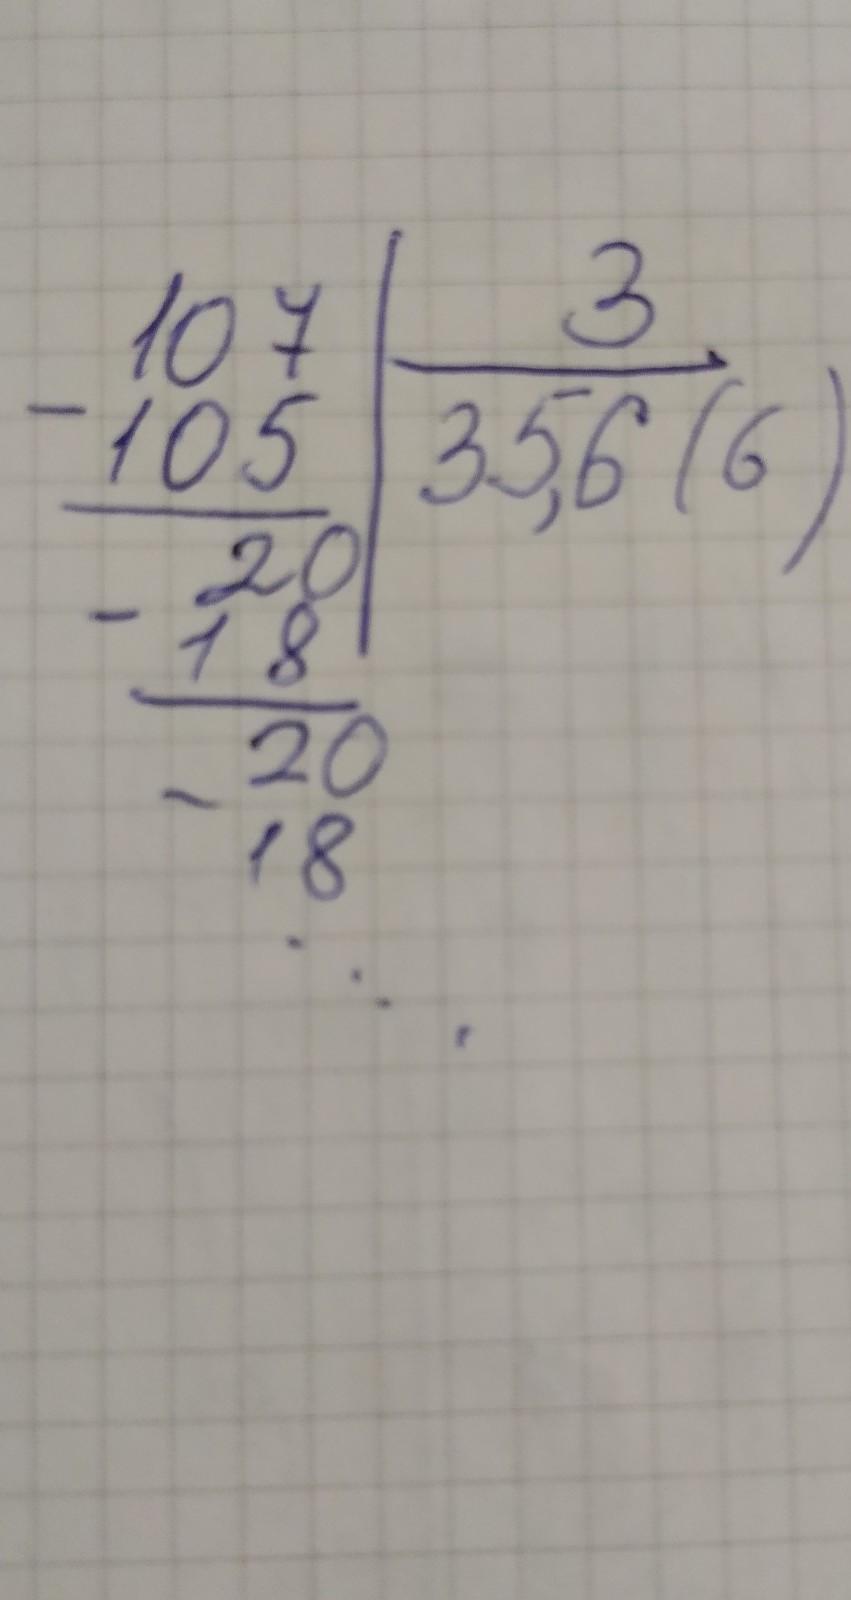 107 3
- 105 35,6(6)
20
- 18
20
- 18
...